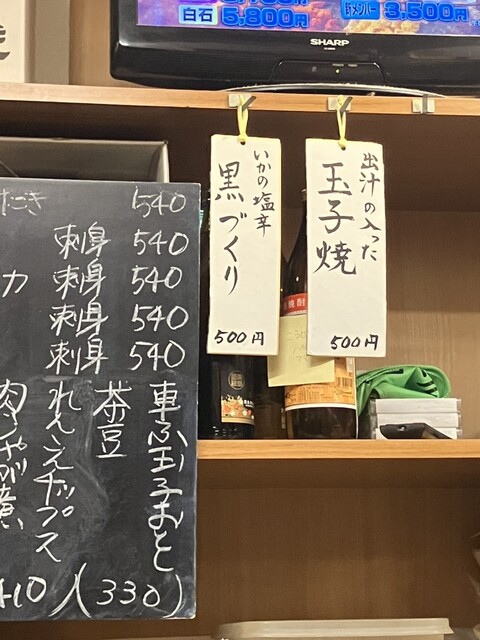 白石 5,800円
3,500円
SHARP
いかの塩辛
黒づくり
500円
出汁の入った
玉子焼
500円
540
刺身 540
カ 刺身 540
刺身 540
刺身 540
車ふ玉子もと
茶豆
れんこんチップス
410 (330)